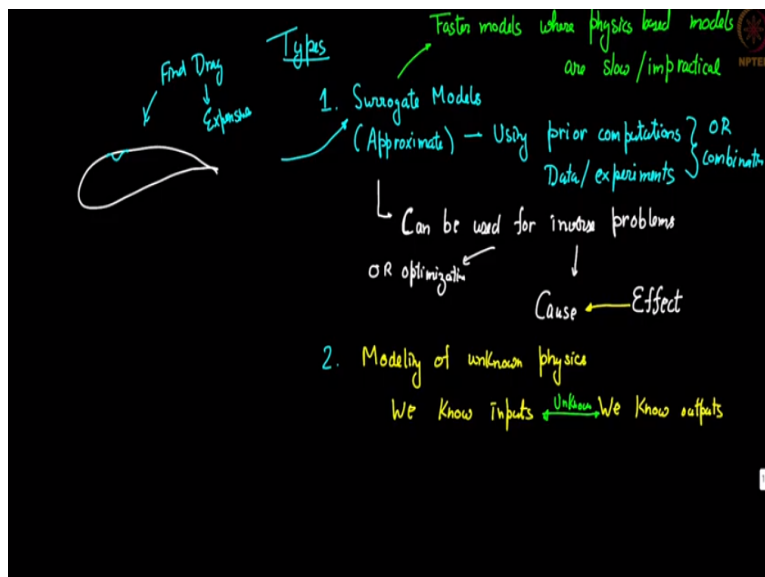 Faster models where physics based models
are slow/impractical
NPTEL
Types
Find Drag
Expensive
1. Surrogate Models
(Approximate) - Using prior computations
Data/experiments
OR
combination
Can be used for inverse problems
OR optimization
Cause Effect
2. Modeling of unknown physics
We know inputs Unknown We know outputs